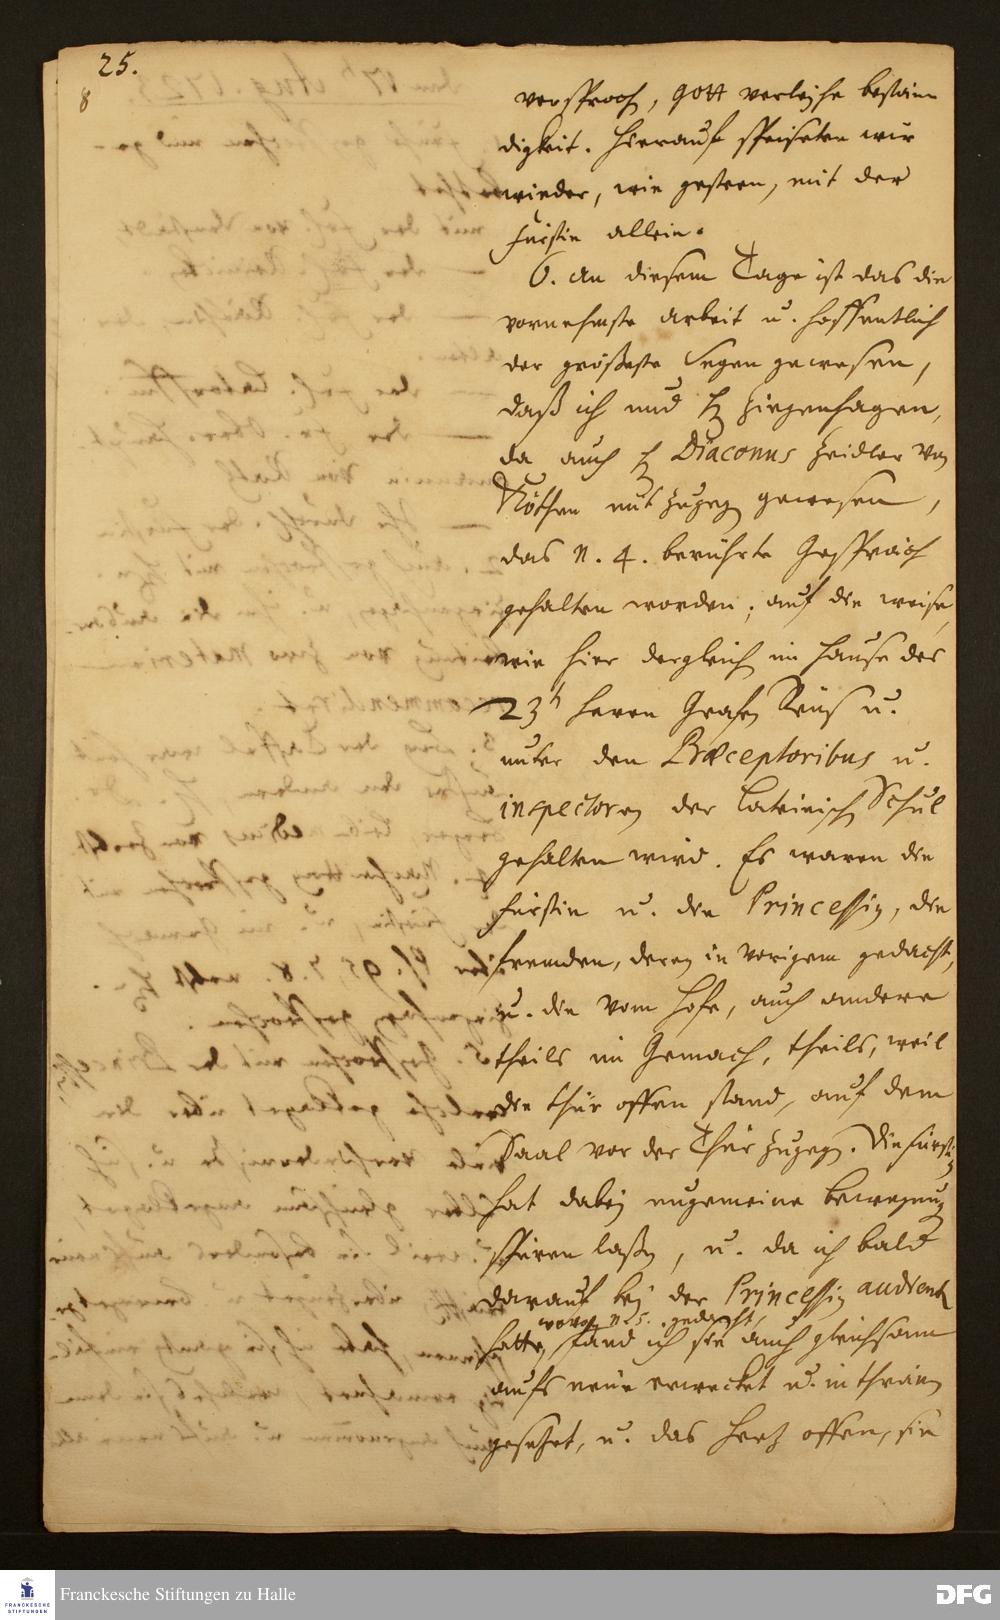 25.
8
versprach, Gott verleihe bestän
digkeit. Hierauf speiseten wir
wieder, wie gestern, mit der
Fürstin allein.
6. An diesem Tage ist das die
vornehmste arbeit u. hoffentlich
der größeste Segen gewesen,
daß ich und H Ziegenhagen,
da auch H Diaconus Zeidler von
Köthen mit zugegen gewesen,
das n. 4. berührte Gespräch
gehalten worden; auf die weise,
wie hier dergleich im Hause des
23 Herrn Grafen Reuß u.
unter den Præceptoribus u.
inspectoren der Lateinisch Schul
gehalten wird. Es waren die
Fürstin u. die Princeßin, die
fremden, deren in vorigem gedacht,
u. die vom Hofe, auch andere
theils im Gemach, theils, weil
die thür offen stand, auf dem
Saal vor der Thür zugegen. Die Fürstin
hat dabey ungemeine bewegung
spüren laßen, u. da ich bald
darauf bey der Princeßin audientz
wovon n 5. gedacht,
hatte, fand ich sie auch gleichsam
aufs neue erwecket u. in thränen
gesetzet, u. das Hertz offen, sie
Franckesche Stiftungen zu Halle
FRANCKESCHE
STIFTUNGEN
DFG